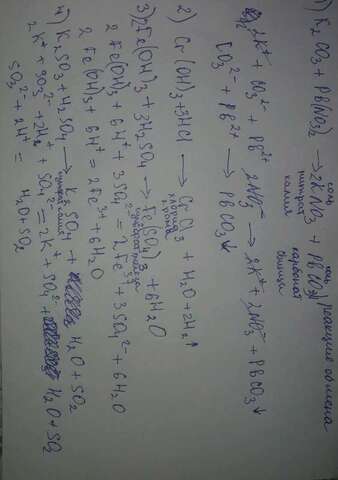 1) K₂CO₃ + Pb(NO₃)₂ → 2KNO₃ + PbCO₃↓ Реакция обмена
соль нитрат калия
соль карбонат свинца
2K⁺ + CO₃²⁻ + Pb²⁺ 2NO₃⁻ → 2K⁺ + 2NO₃⁻ + PbCO₃↓
CO₃²⁻ + Pb²⁺ → PbCO₃↓
2) Cr(OH)₃ + 3HCl → CrCl₃ + H₂O + 2H₂↑
хлорид хрома
3) 2Fe(OH)₃ + 3H₂SO₄ → Fe(SO₄)3 + 6H₂O
сульфат железа
2Fe(OH)₃ + 6H⁺ + 3SO₄²⁻ = 2Fe³⁺ + 3SO₄²⁻ + 6H₂O
2Fe(OH)₃ + 6H⁺ = 2Fe³⁺ + 6H₂O
4) K₂SO₃ + H₂SO₄ → K₂SO₄ + H₂O + SO₂
сульфат калия
2K⁺ + SO₃²⁻ + 2H⁺ + SO₄²⁻ = 2K⁺ + SO₄ + H₂O + SO₂
SO₃²⁻ + 2H⁺ = H₂O + SO₂